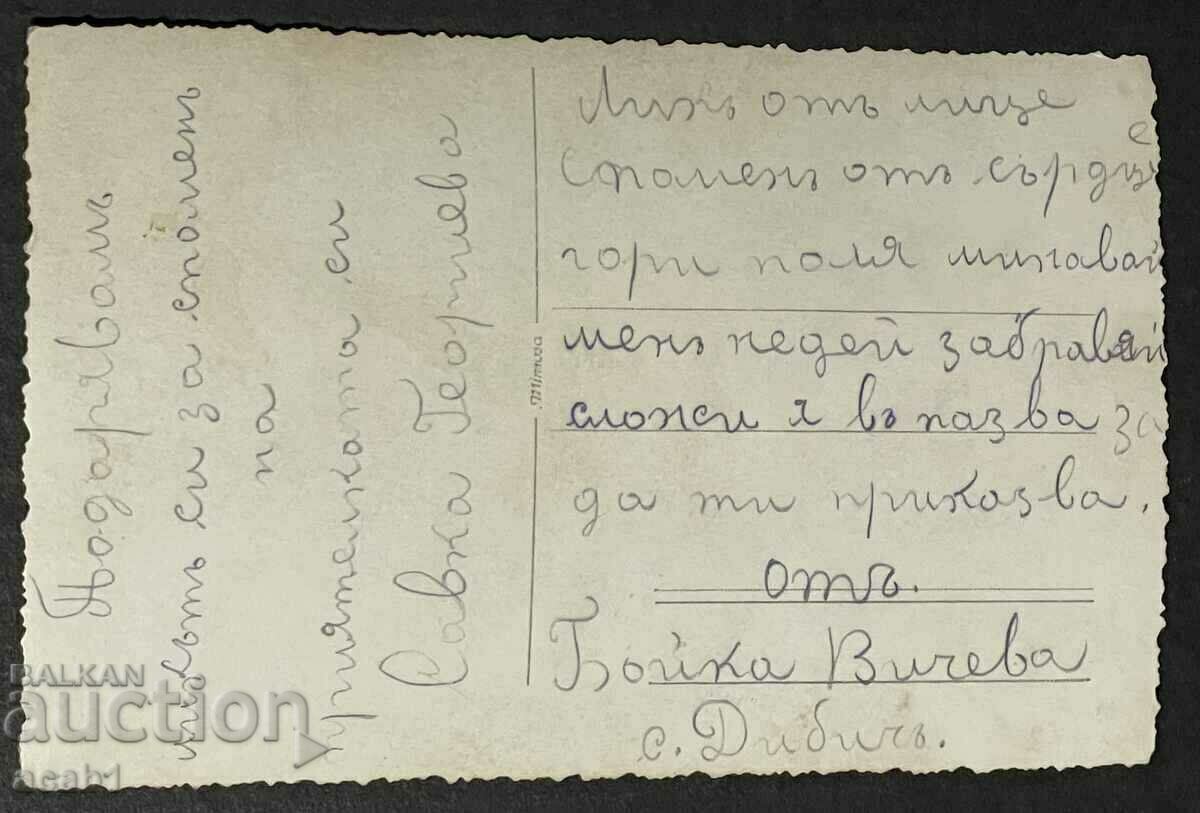 Подарявамъ
ликътъ си за споменъ
на
приятелката си
Савка Георгиева
Mimosa
Ликъ отъ лице
Споменъ отъ сърдце
гори поля минавай
менъ недей забравяй
сложи я въ пазва за
да ти приказва.
отъ.
Бойка Вичева
с. Дибичъ.
BALKAN
auction
acab1